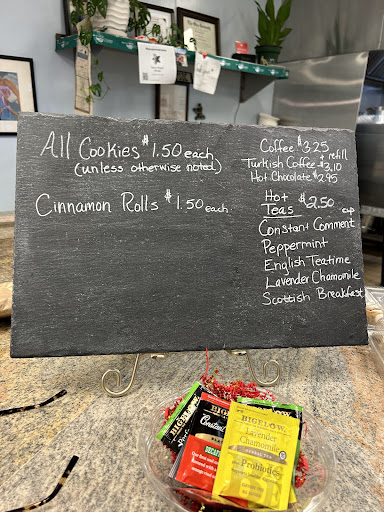 All Cookies $1.50 each
(unless otherwise noted)
Cinnamon Rolls $1.50 each
Coffee $3.25
Turkish Coffee $3.10
refill
Hot Chocolate $2.95
Hot
Teas $2.50 cup
Constant Comment
Peppermint
English Teatime
Lavender Chamomile
Scottish Breakfast
BIGELOW
Constant
DECAF
BIGELOW
Lavender
Chamomile
HERBAL TEA
Probiotics